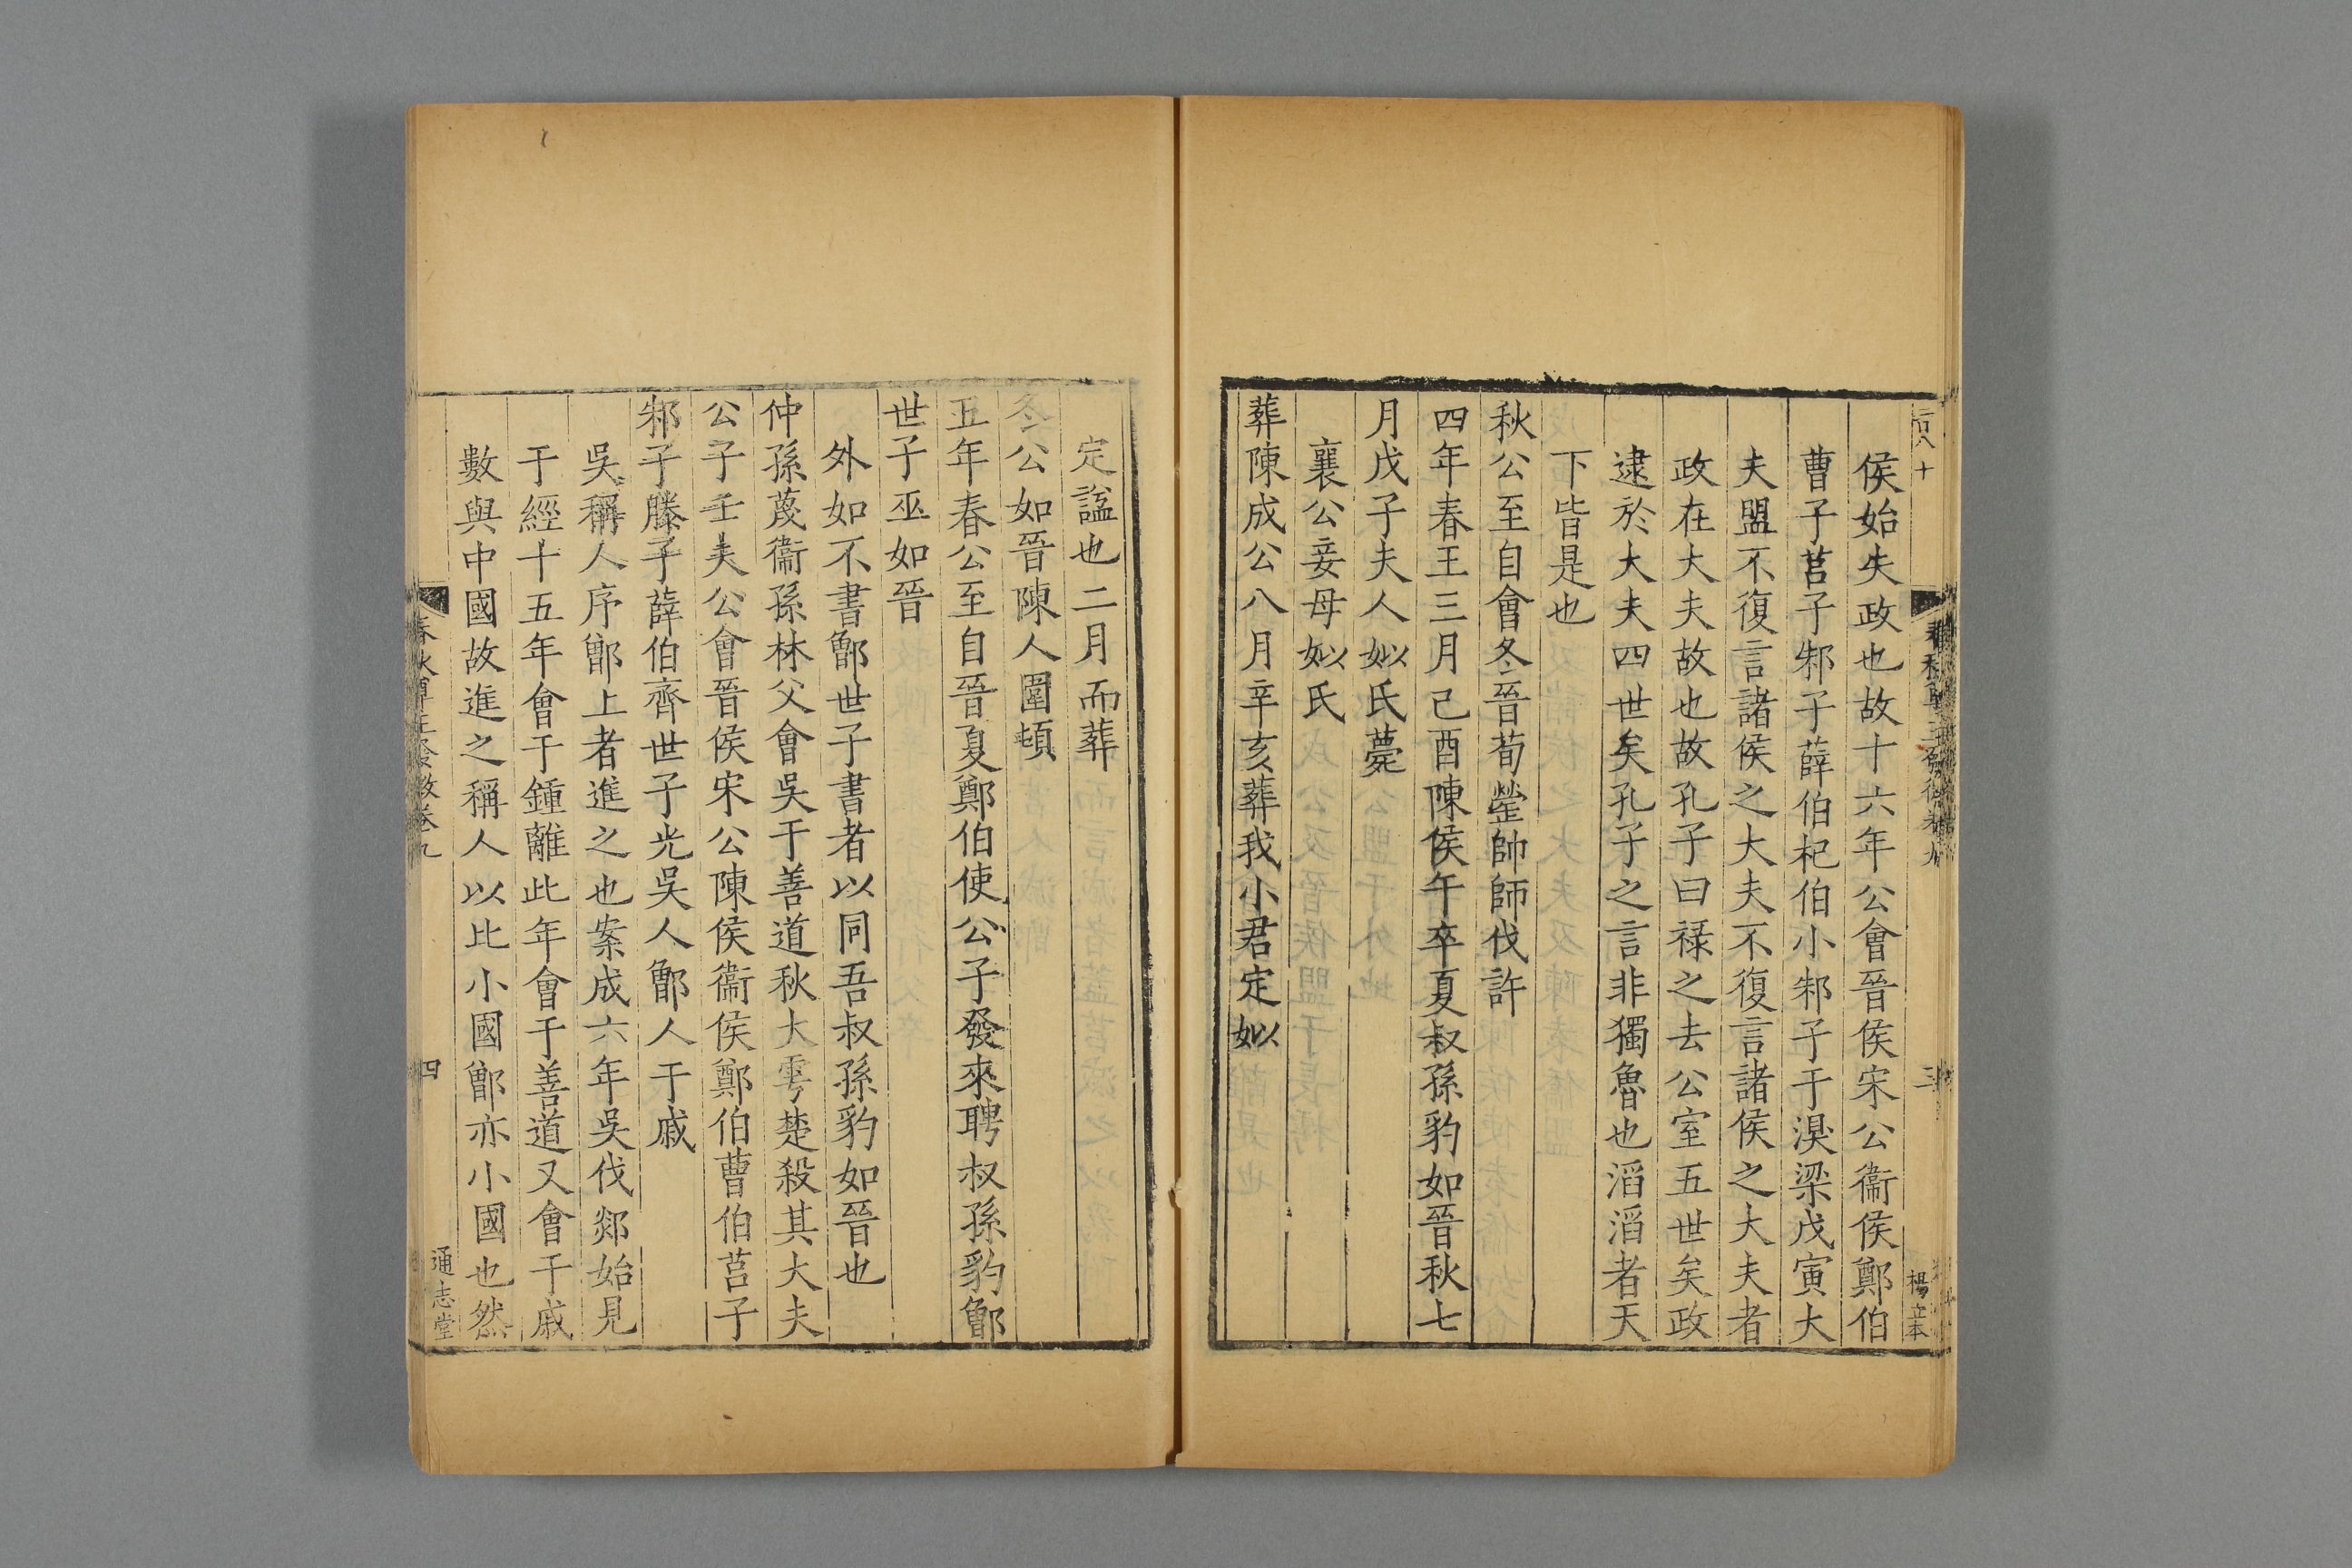 侯始失政也故十六年公會晉侯宋公衞侯鄭伯
曹子莒子邾子薛伯杞伯小邾子于湨梁戊寅大
夫盟不復言諸侯之大夫不復言諸侯之大夫者
政在大夫故也故孔子曰禄之去公室五世矣政
逮於大夫四世矣孔子之言非獨魯也滔滔者天
下皆是也
秋公至自會冬晉荀罃帥師伐許
四年春王三月己酉陳侯午卒夏叔孫豹如晉秋七
月戊子夫人姒氏薨
襄公妾母姒氏
葬陳成公八月辛亥葬我小君定姒
三
楊立本
定謚也二月而葬
冬公如晉陳人圍頓
五年春公至自晉夏鄭伯使公子發來聘叔孫豹鄫
世子巫如晉
外如不書鄫世子書者以同吾叔孫豹如晉也
仲孫蔑衞孫林父會吳于善道秋大雩楚殺其大夫
公子壬夫公會晉侯宋公陳侯衞侯鄭伯曹伯莒子
邾子滕子薛伯齊世子光吳人鄫人于戚
吳稱人序鄫上者進之也案成六年吳伐郯始見
于經十五年會于鍾離此年會于善道又會于戚
數與中國故進之稱人以比小國鄫亦小國也然
四
通志堂